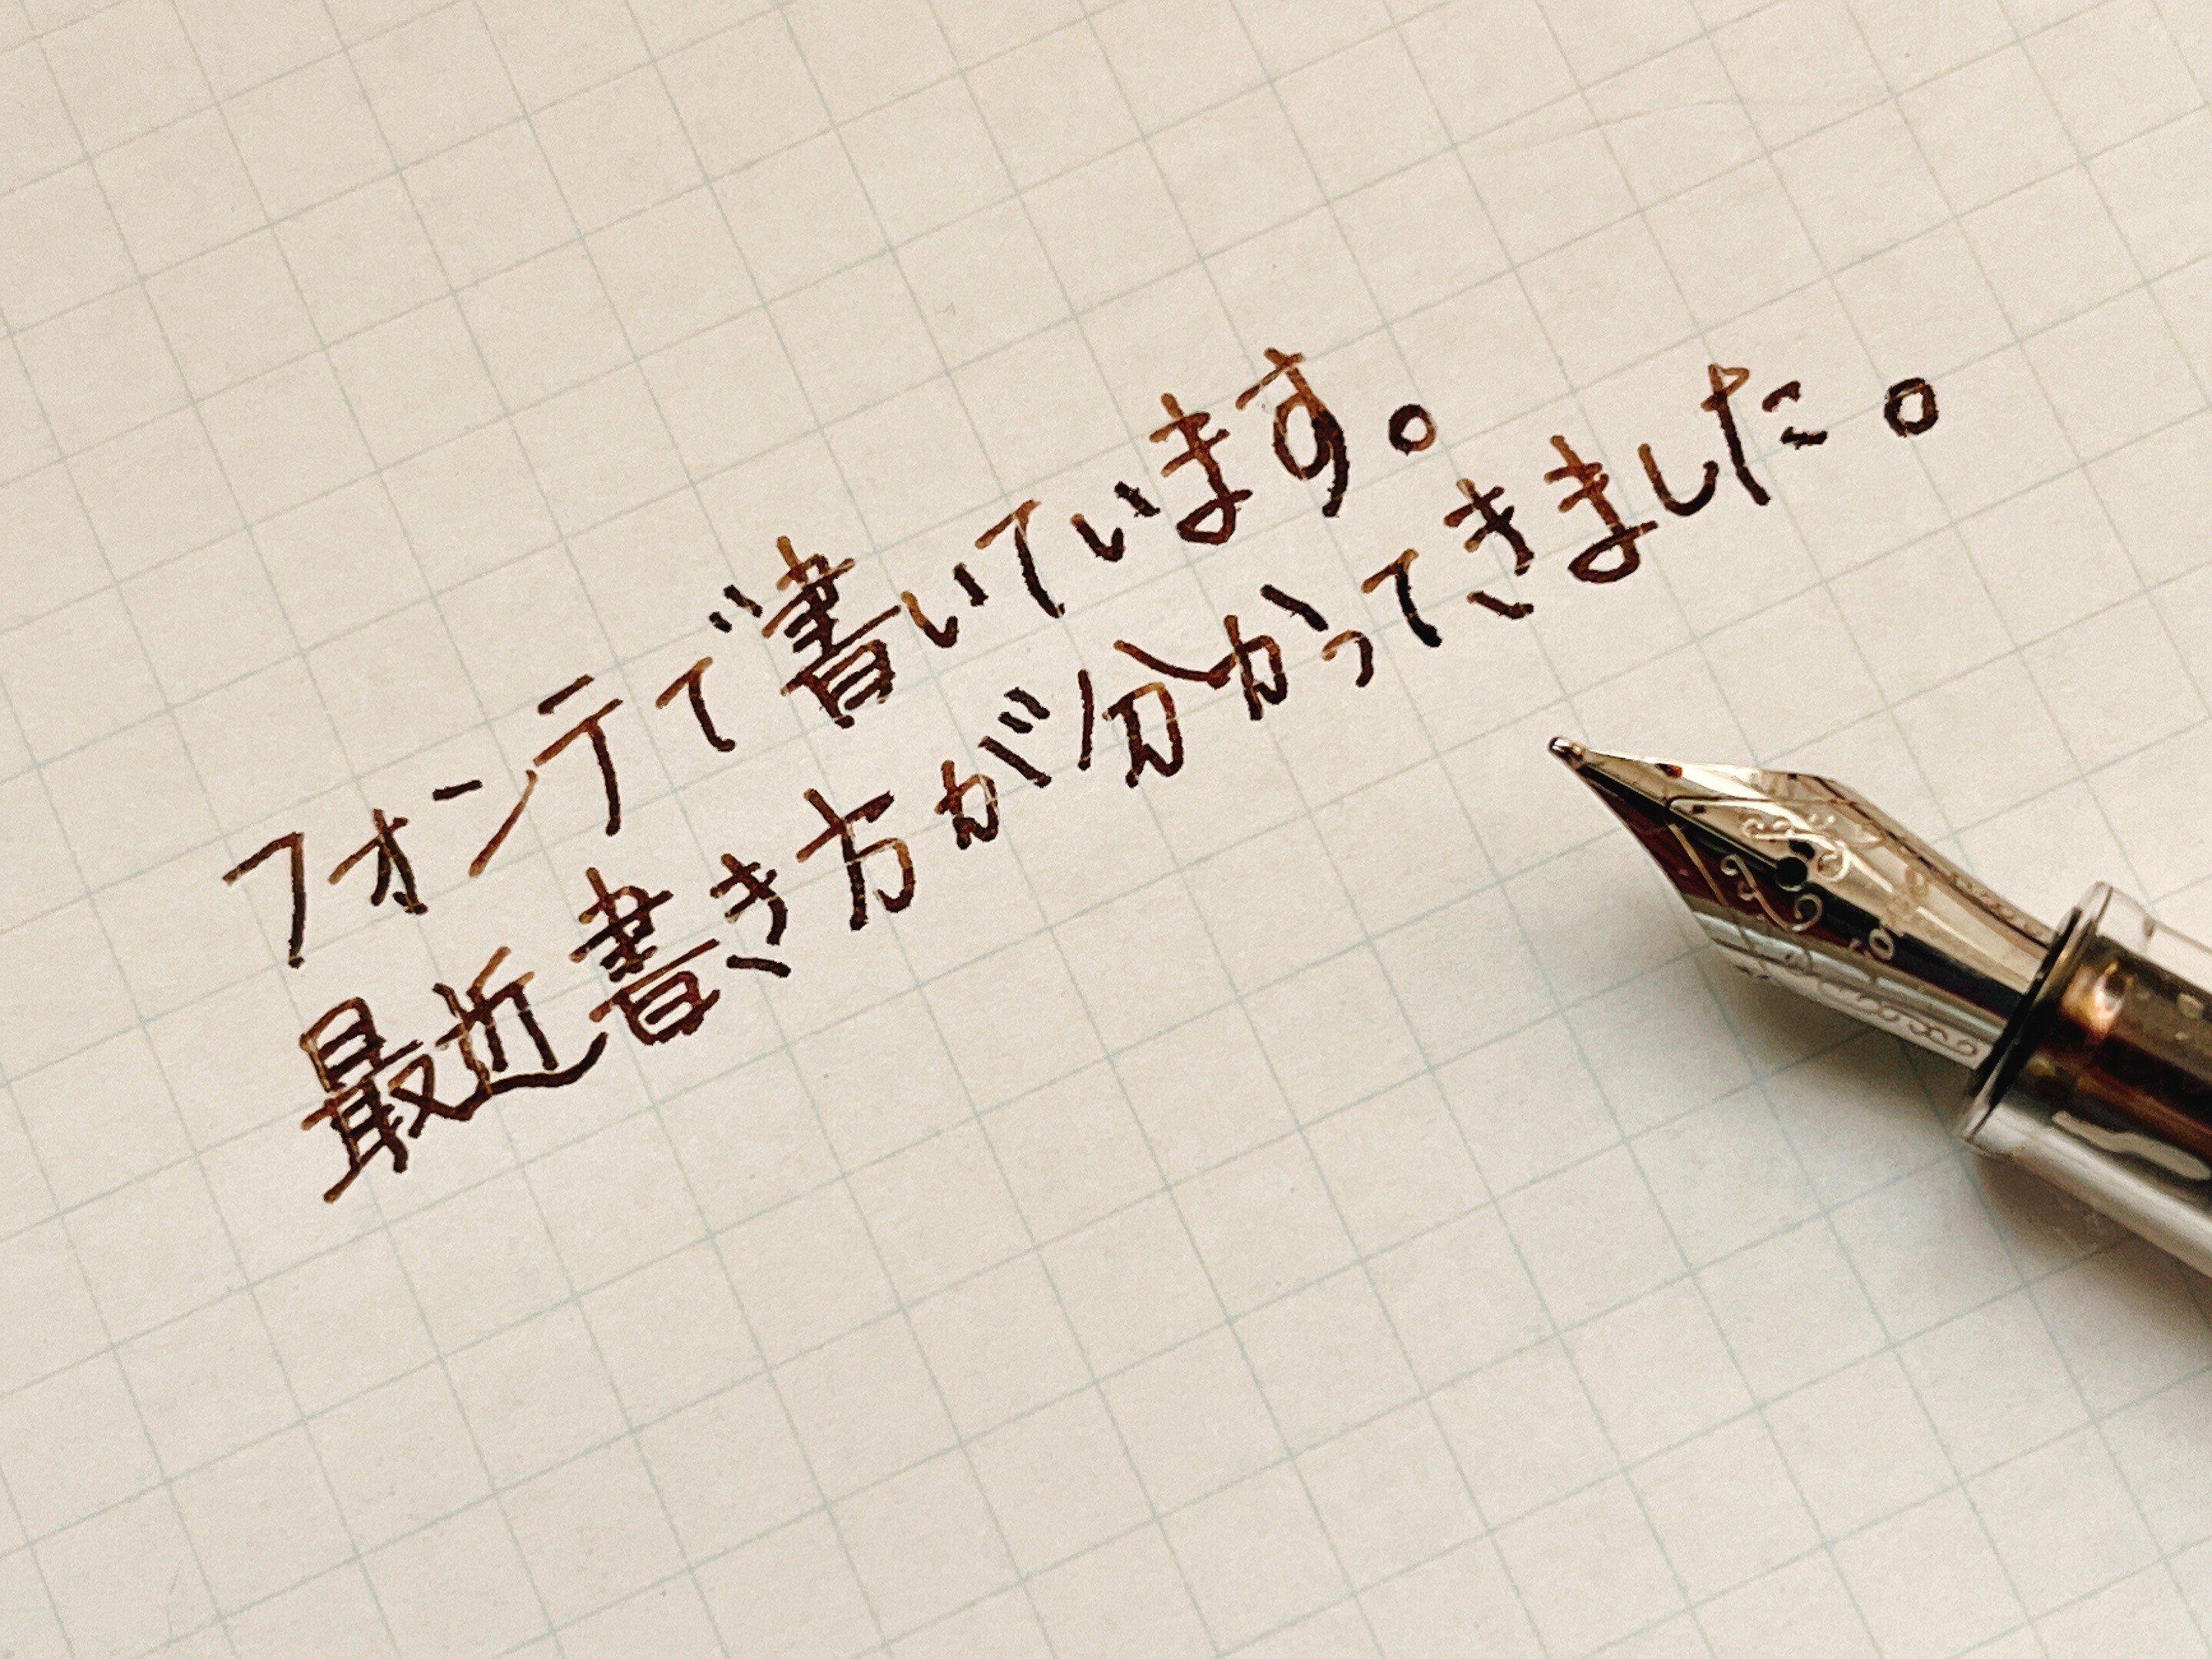 フォンテで書いています。
最近書き方が分かってきました。